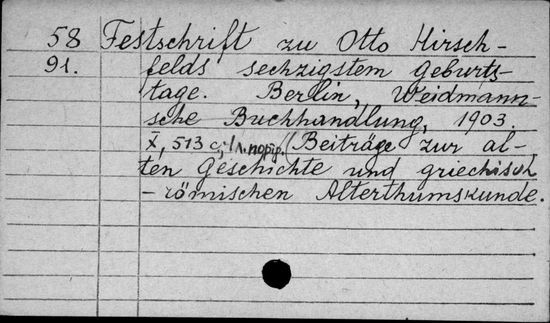 58 Festschrift zu Otto Hirsch-
91. felds sechzigstem Geburts-
tage. Berlin, Weidmann-
sche Buchhandlung, 1903.
X, 513 c., 1 л. портр. (Beiträge zur al-
ten Geschichte und griechisch
- römischen Alterthumskunde.